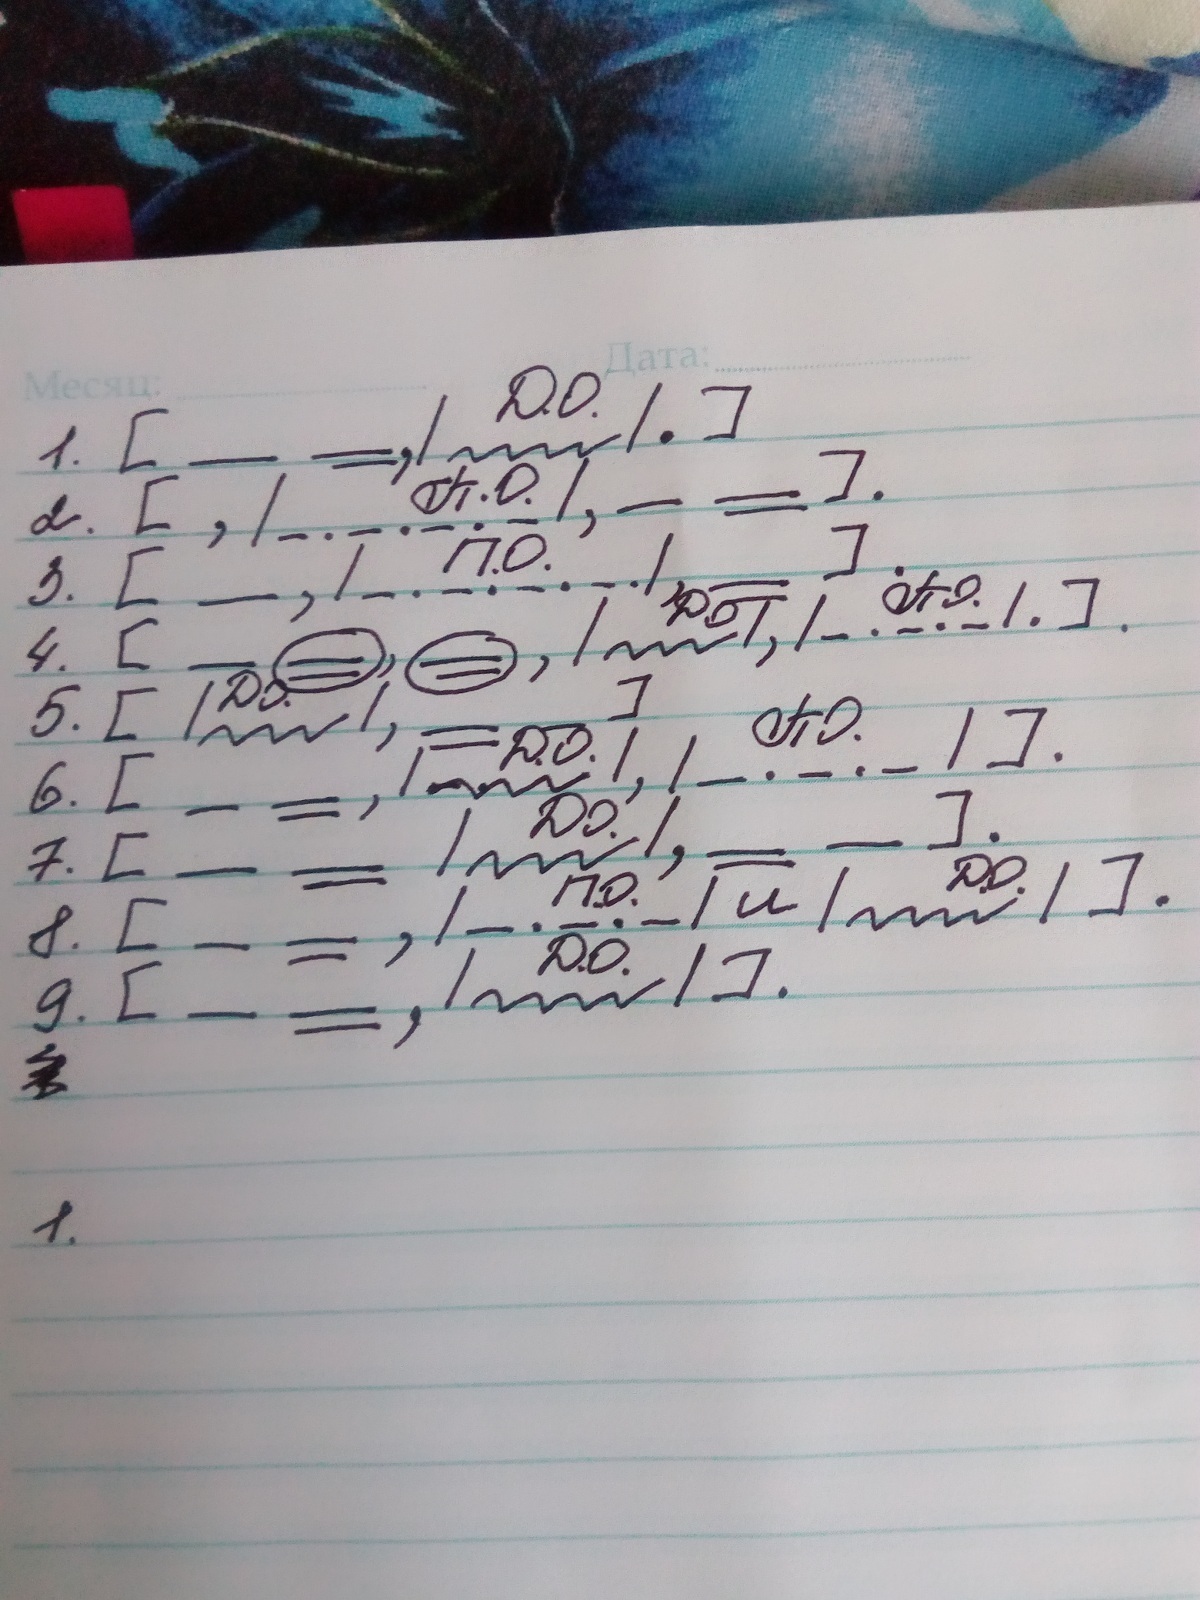 Месяц: Дата:
1. [ — =, | Д.О. | . ]
2. [ , | Д.О. |, — = ].
3. [ —, | П.О. |, = ].
4. [ — =, =, | Д.О. |, | Д.О. | . ].
5. [ | Д.О. |, = ]
6. [ — =, | Д.О. |, | Д.О. | ].
7. [ — = | Д.О. |, = — ].
8. [ — =, | П.О. | и | Д.О. | ].
9. [ — =, | Д.О. | ].
1.